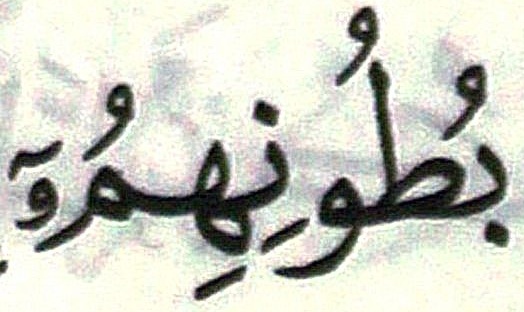 بُطُونِهِمُۥٓ